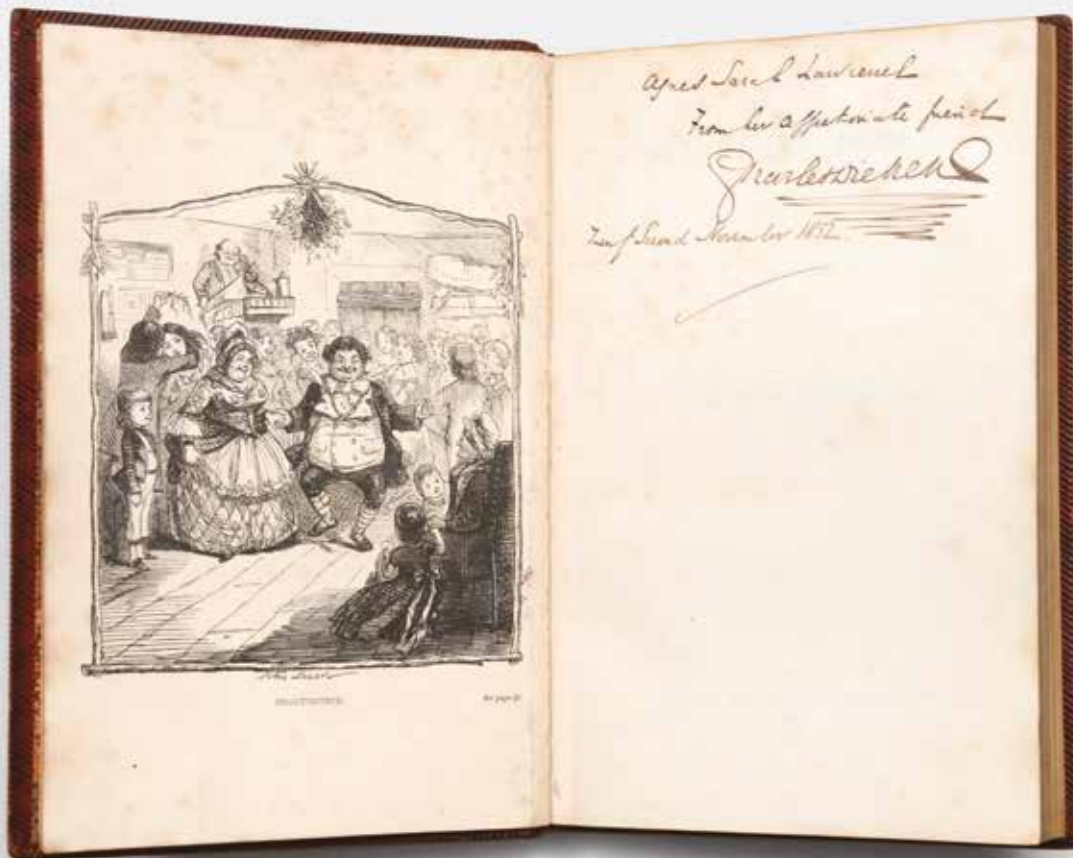 John Leech
FRONTISPIECE.
See page
Agnes Sarah Lawrence
From her affectionate friend
Charles Dickens
Twenty Second November 1852.